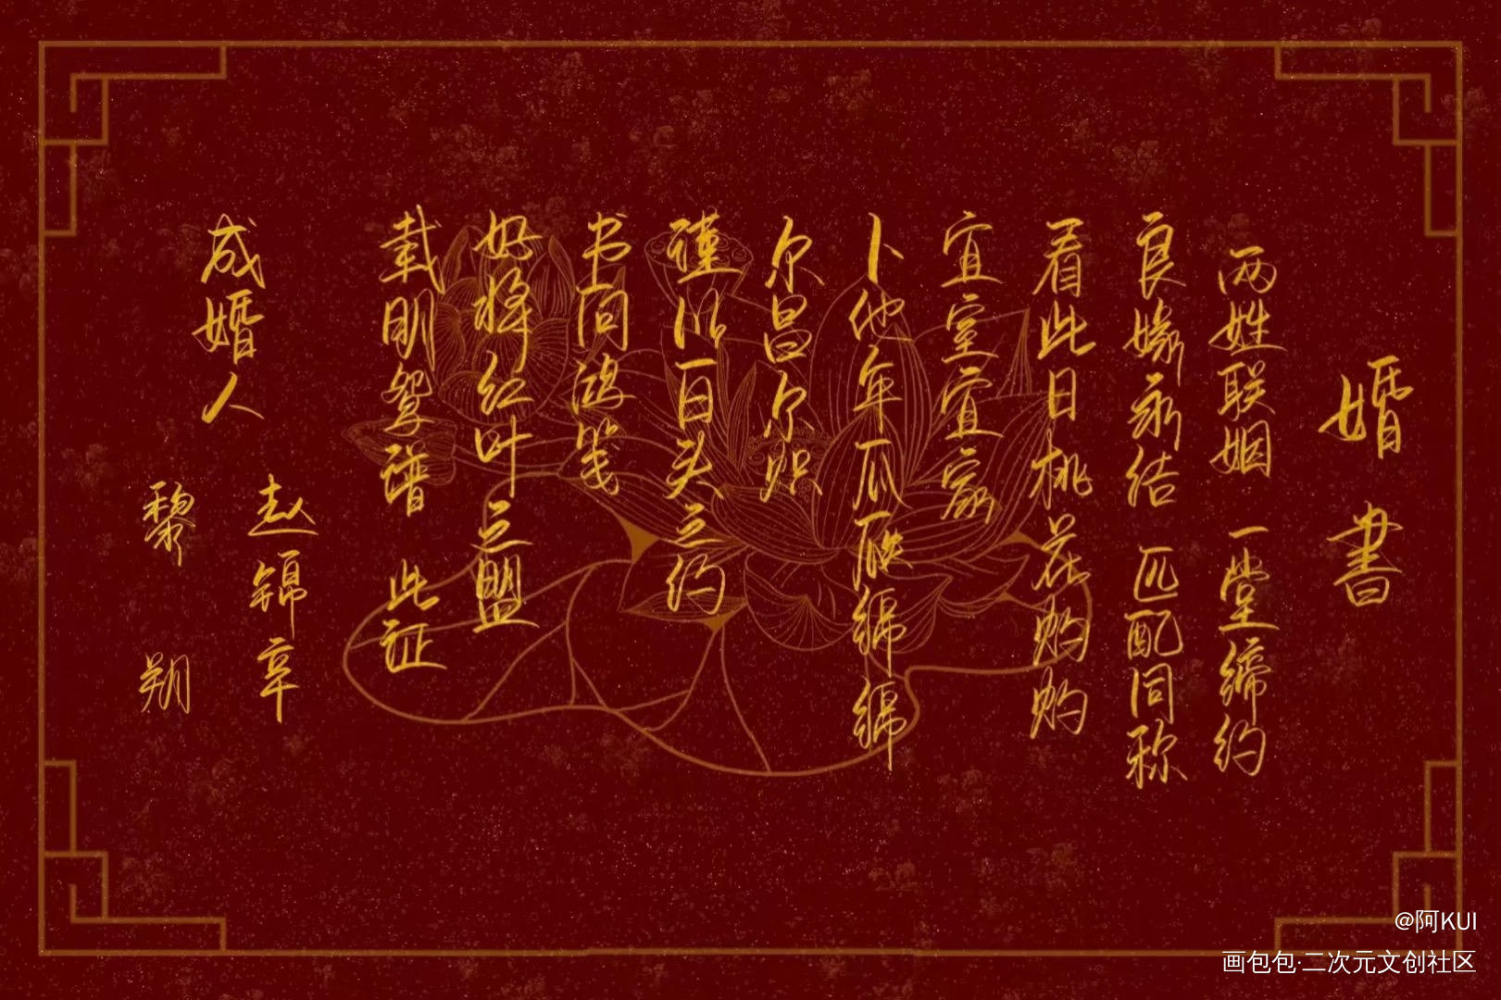 婚書
两姓联姻 一堂缔约
良缘永结 匹配同称
看此日桃花灼灼
宜室宜家
卜他年瓜瓞绵绵
尔昌尔炽
谨以白头之约
书向鸿笺
好将红叶之盟
载明鸳谱 此证
成婚人
赵锦辛
黎朔
@阿KUI
画包包·二次元文创社区